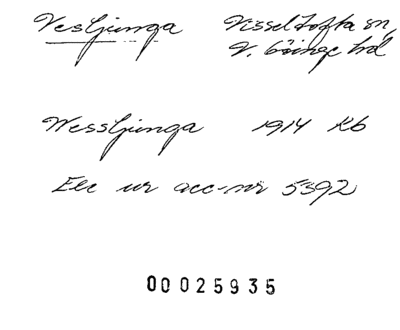 Vesljunga Visseltofta sn,
V. Göinge hd
Wessljunga 1914 Kb
Elc ur acc-nr 5392
00025935